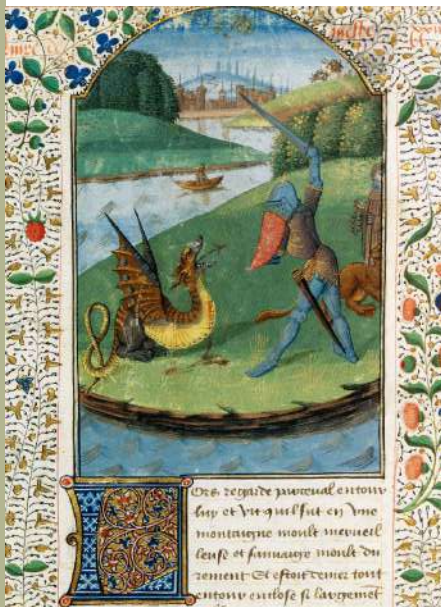 Ors regarde parceval entour
luy et vit quil fut en Une
montaigne moult merveil
leuse et sauvaige moult du
rement Et estoit de mer tout
entour enclose si